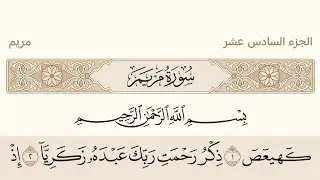 الجزء السادس عشر مريم
سُورَةُ مَرْيَمَ
بِسْمِ اللَّهِ الرَّحْمَٰنِ الرَّحِيمِ
كٓهيعٓصٓ ١ ذِكْرُ رَحْمَتِ رَبِّكَ عَبْدَهُۥ زَكَرِيَّآ ٢ إِذْ